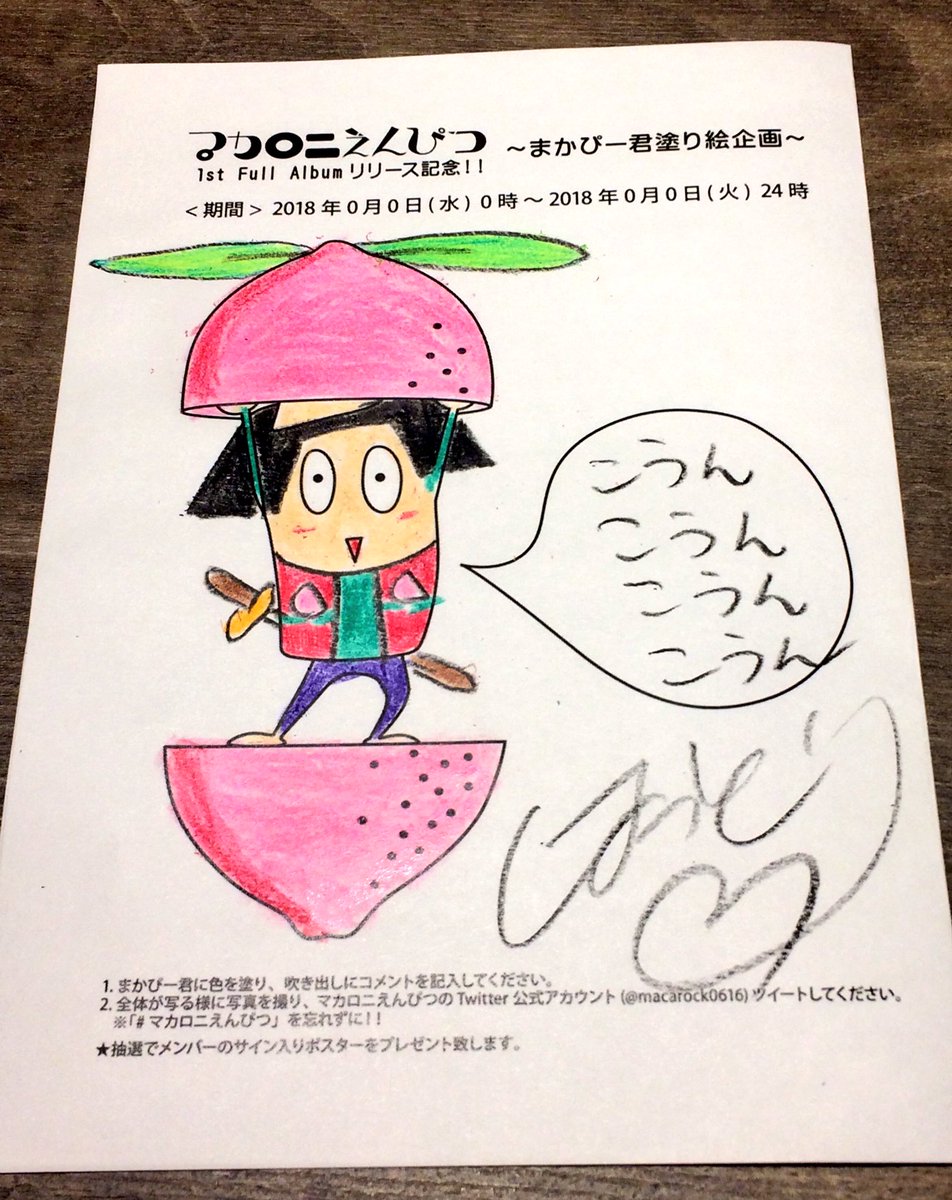 マカロニえんぴつ ～まかぴー君塗り絵企画～
1st Full Album リリース記念!!
<期間> 2018 年 0 月 0 日 (水) 0 時 ～ 2018 年 0 月 0 日 (火) 24 時
こうん
こうん
こうん
こうん
はっとり
1. まかぴー君に色を塗り、吹き出しにコメントを記入してください。
2. 全体が写る様に写真を撮り、マカロニえんぴつの Twitter 公式アカウント (@macarock0616) ツイートしてください。
※「# マカロニえんぴつ」を忘れずに!!
★抽選でメンバーのサイン入りポスターをプレゼント致します。